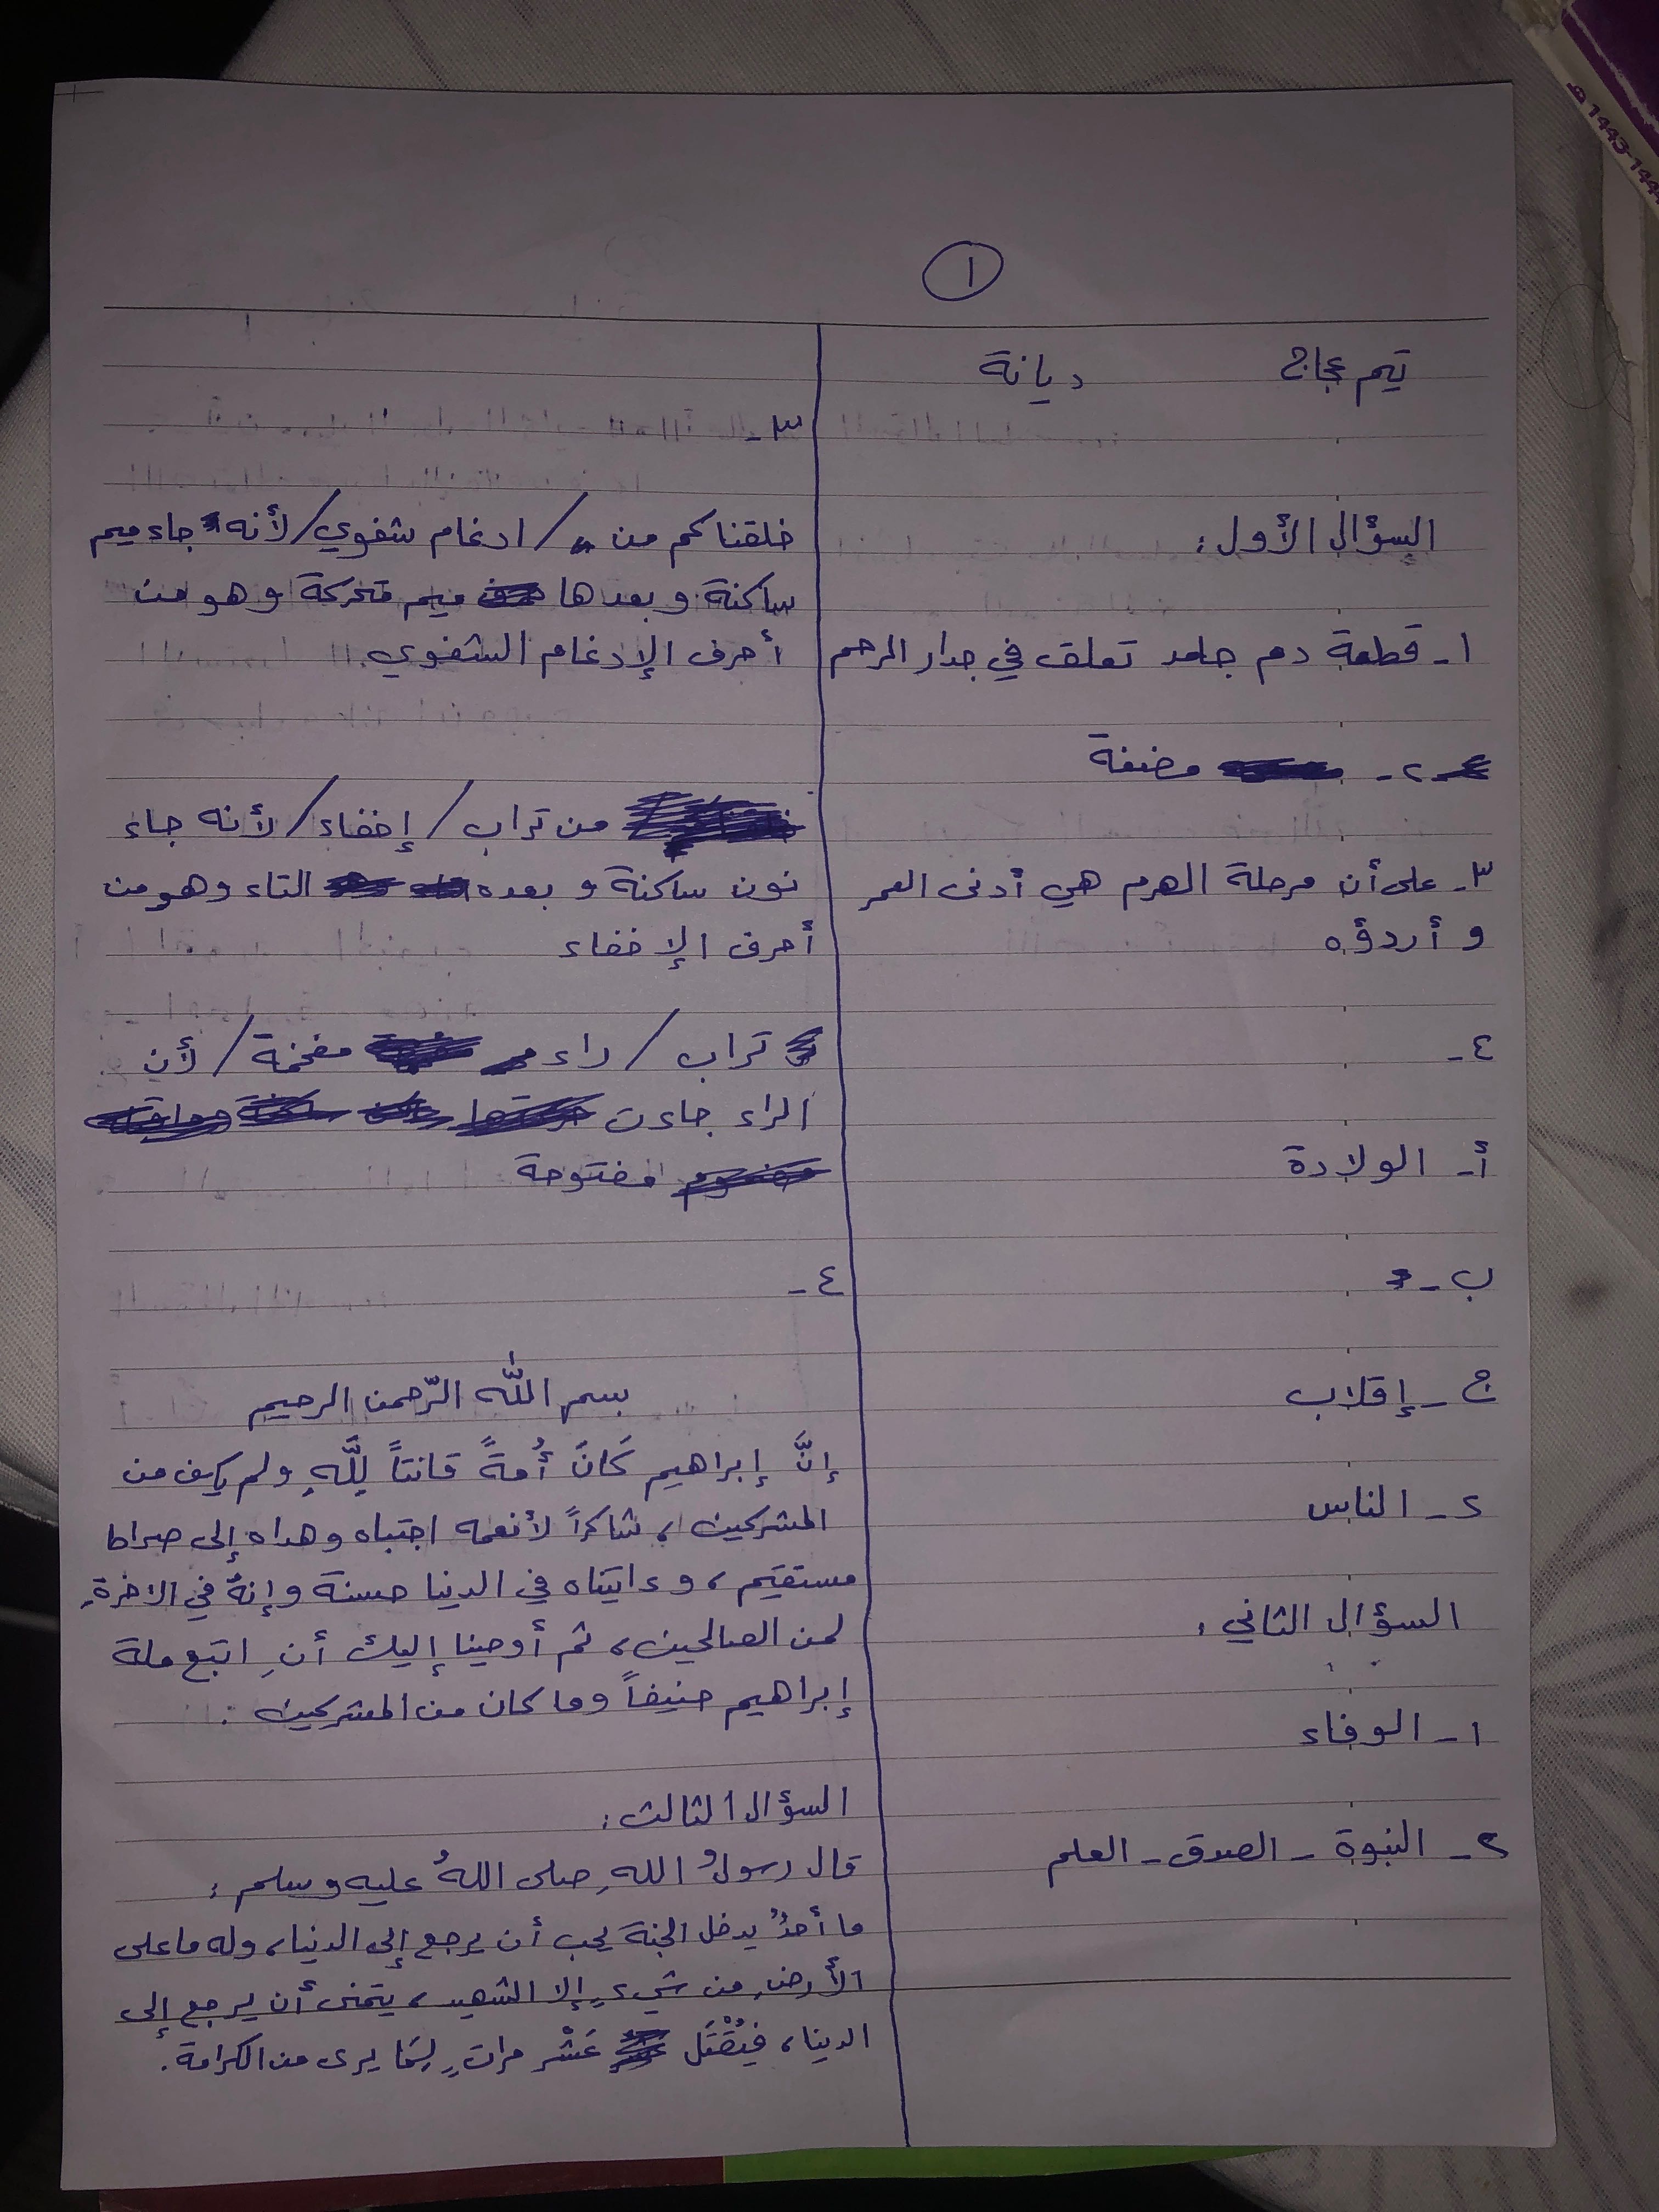 ١
تيم عجاج ديانة
السؤال الأول:
١- قطعة دم جامد تعلق في جدار الرحم
٢- مضغة
٣- على أن مرحلة الهرم هي أدنى العمر
و أردؤه
٤-
أ- الولادة
ب-
ج- إقلاب
د- الناس
السؤال الثاني:
١- الوفاء
٢- النبوة - الصدق - العلم
٣-
خلقناكم من / ادغام شفوي / لأنه جاء ميم
ساكنة و بعدها ميم متحركة وهو من
أحرف الإدغام الشفوي.
من تراب / إخفاء / لأنه جاء
نون ساكنة و بعده التاء وهو من
أحرف الإخفاء
تراب / راء مفخمة / لأن
الراء جاءت
مفتوحة
٤-
بسم اللّٰه الرّحمن الرحيم
إنَّ إبراهيم كَانَ أُمةً قانتاً لِلَّهِ ولم يكن من
المشركين، شاكراً لأنعمه اجتباه وهداه إلى صراط
مستقيم، وءاتيناه في الدنيا حسنة وإنهُ في الاخرةِ
لمن الصالحين، ثم أوحينا إليك أنِ اتبع ملة
إبراهيم حنيفاً وما كان من المشركين.
السؤال الثالث:
قال رسولُ اللهِ صلى اللهُ عليه وسلم:
ما أحدٌ يدخل الجنة يحب أن يرجع إلى الدنيا، وله ما على
الأرضِ من شيءٍ إلا الشهيد، يتمنى أن يرجع إلى
الدينا، فيُقْتَل عَشْر مراتٍ لِمَا يرى من الكرامة.